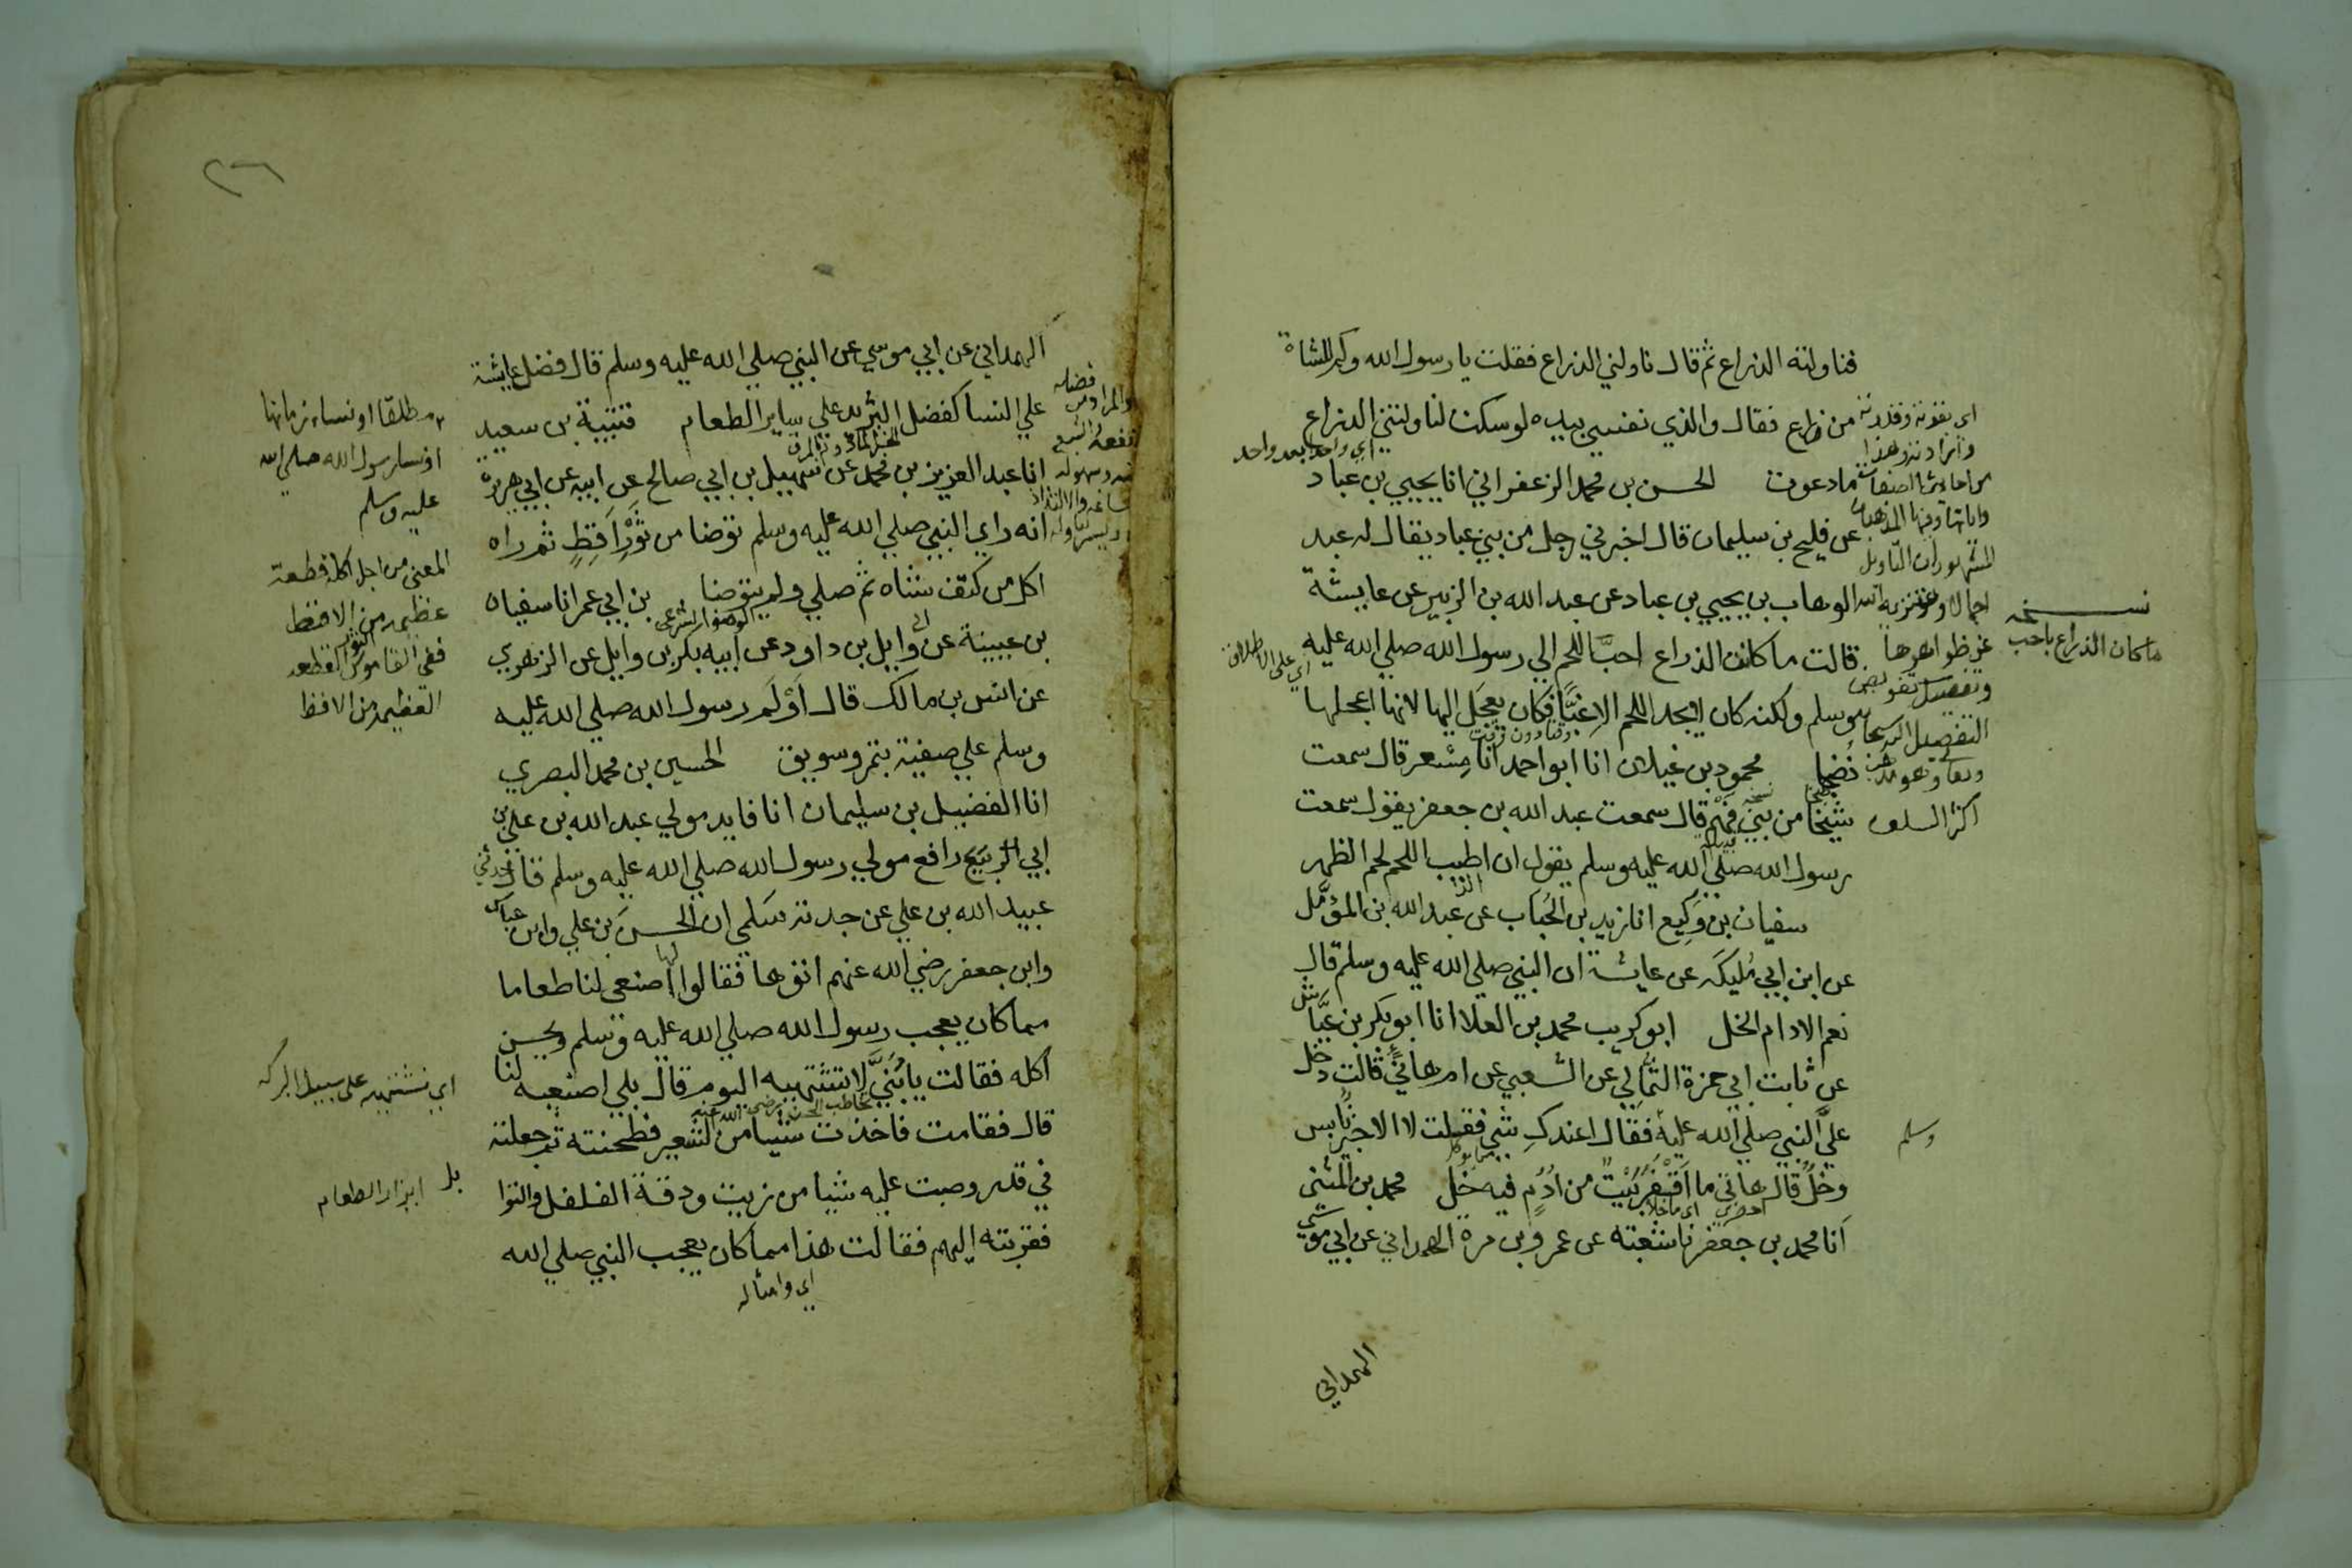 فناولته الذراع ثم قال ناولني الذراع فقلت يا رسول الله وكم للشاة
من ذراع فقال والذي نفسي بيده لو سكت لناولتني الذراع
ما دعوت الحسن بن محمد الزعفراني انا يحيي بن عباد
عن فليح بن سليمان قال اخبرني رجل من بني عباد يقال له عبد
الوهاب بن يحيي بن عباد عن عبد الله بن الزبير عن عايشة
قالت ما كانت الذراع احب اللحم الي رسول الله صلي الله عليه
وسلم ولكنه كان لا يجد اللحم الا غبا فكان يعجل اليها لانها اعجلها
نضجا محمود بن غيلان انا ابو احمد انا مسعر قال سمعت
شيخا من بني فهم قال سمعت عبد الله بن جعفر يقول سمعت
رسول الله صلي الله عليه وسلم يقول ان اطيب اللحم لحم الظهر
سفيان بن وكيع انا زيد بن الحباب عن عبد الله بن المؤمل
عن ابن ابي مليكه عن عايشة ان النبي صلي الله عليه وسلم قال
نعم الادام الخل ابو كريب محمد بن العلا انا ابو بكر بن عياش
عن ثابت ابي حمزة الثمالي عن الشعبي عن ام هاني قالت دخل
علي النبي صلي الله عليه فقال اعندك شي فقلت لا الا خبز يابس
وخل قال هاتي ما اقفر بيت من ادم فيه خل محمد بن المثني
انا محمد بن جعفر نا شعبة عن عمرو بن مرة الهمداني عن ابي موسي
الهمداني
اي واحدا بعد واحد
نسخه
ما كان الذراع باحب
اي على الاطلاق
وسلم
الهمداني عن ابي موسي عن النبي صلي الله عليه وسلم قال فضل عايشة
علي النسا كفضل الثريد علي ساير الطعام قتيبة بن سعيد
انا عبد العزيز بن محمد عن سهيل بن ابي صالح عن ابيه عن ابي هريرة
انه راي النبي صلي الله عليه وسلم توضا من ثور اقط ثم راه
اكل من كتف شاه ثم صلي ولم يتوضا بن ابي عمر انا سفيان
بن عيينة عن وايل بن داود عن ابيه بكر بن وايل عن الزهري
عن انس بن مالك قال اولم رسول الله صلي الله عليه
وسلم علي صفية بتمر وسويق الحسين بن محمد البصري
انا الفضيل بن سليمان انا فايد مولي عبد الله بن علي بن
ابي رافع مولي رسول الله صلي الله عليه وسلم قال حدثني
عبيد الله بن علي عن جدته سلمي ان الحسن بن علي وابن عباس
وابن جعفر رضي الله عنهم اتوها فقالوا لها اصنعي لنا طعاما
مما كان يعجب رسول الله صلي الله عليه وسلم ويحسن
اكله فقالت يا بني لا تشتهيه اليوم قال بلي اصنعيه لنا
قال فقامت فاخذت شيا من الشعير فطحنته ثم جعلته
في قدر وصبت عليه شيا من زيت ودقة الفلفل والتوا
فقربته اليهم فقالت هذا مما كان يعجب النبي صلي الله
اي وامثاله
مطلقا او نساء زمانها
او نساء رسول الله صلي الله
عليه وسلم
المعنى من اجل اكله قطعة
عظيمه من الاقط
ففي القاموس الثور القطعه
العظيمه من الاقط
اي نشتهيه على سبيل البركه
ابزار الطعام
الوضوء الشرعي
يخاطب الحسن رضي الله عنه
٢٦